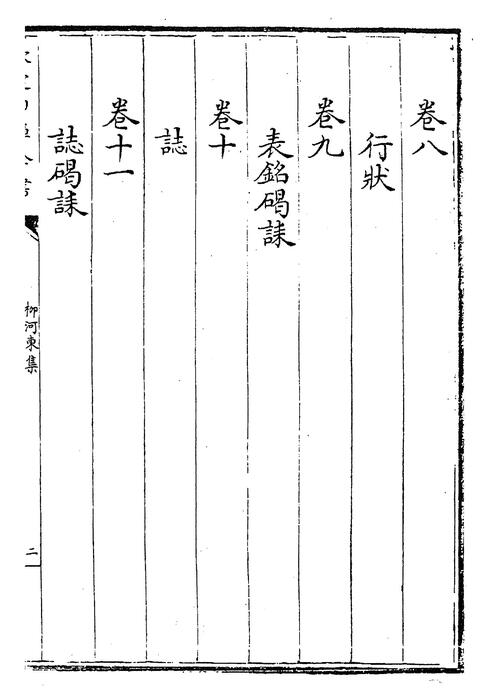 卷八
行狀
卷九
表銘碣誄
卷十
誌
卷十一
誌碣誄
柳河東集
二